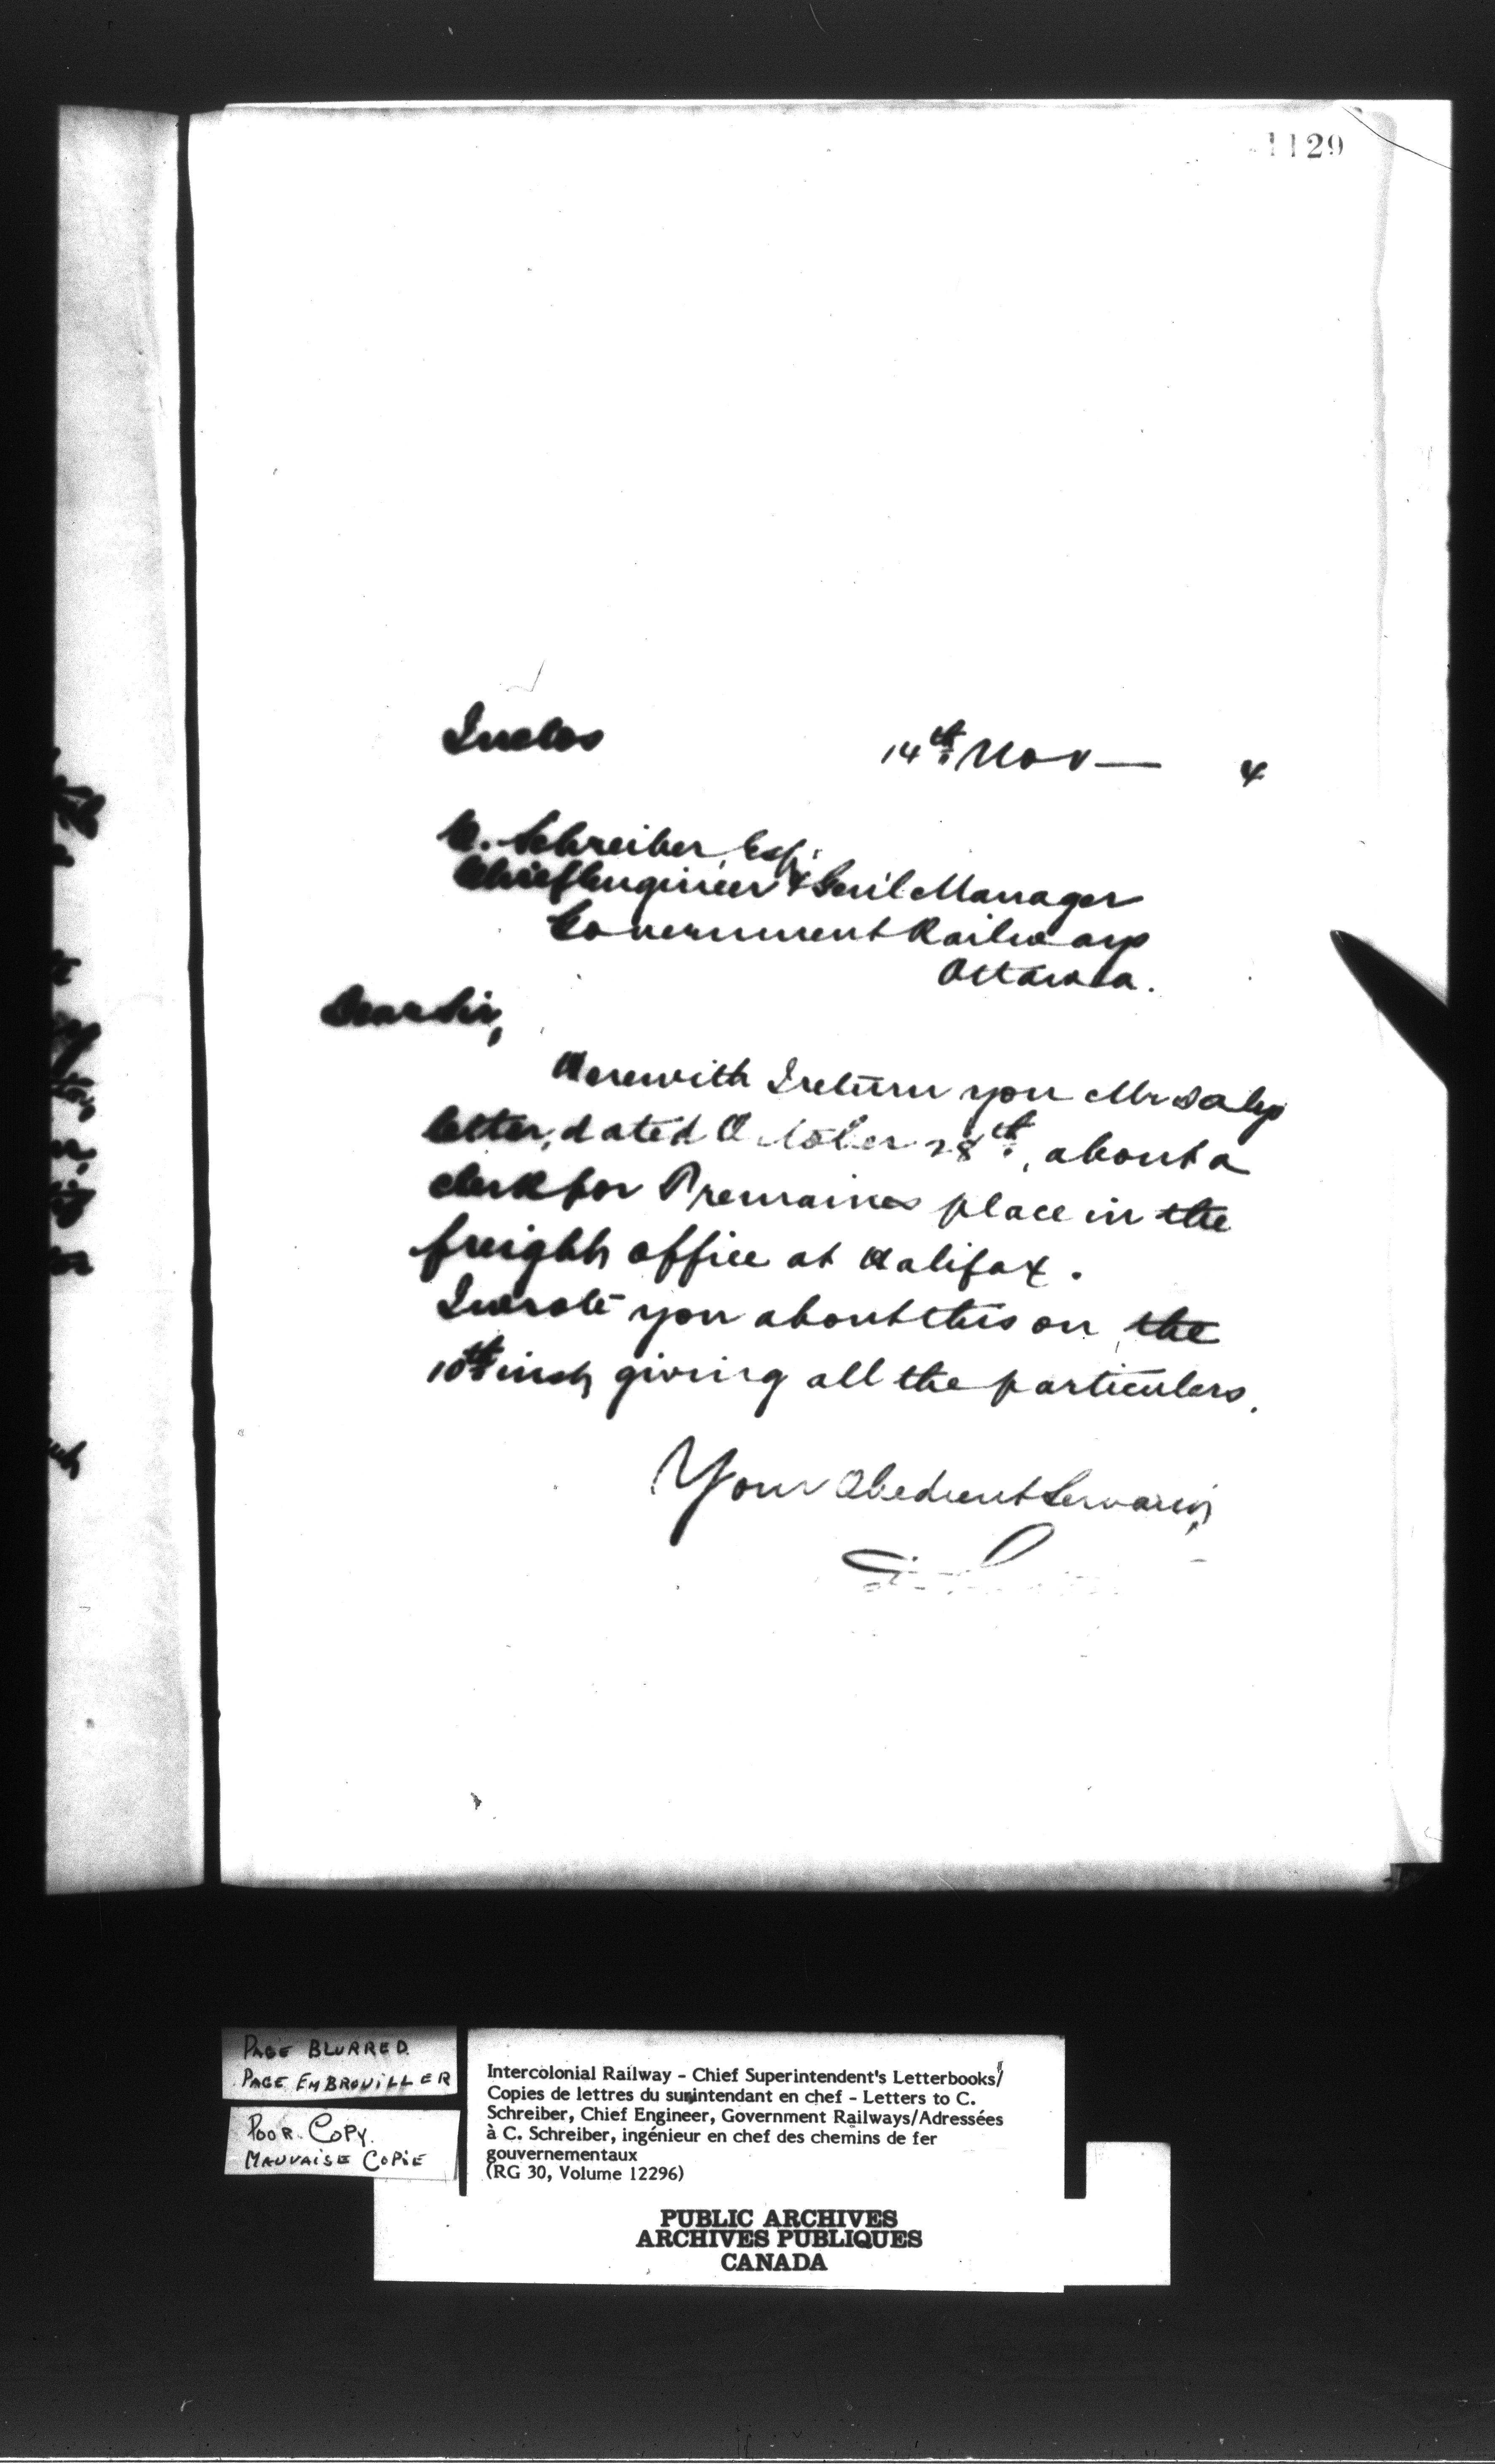 1129
Inclos
14th Nov — 4
C. Schreiber, Esq.
Chief Engineer & Genl Manager
Government Railways
Ottawa.
Dear Sir,
Herewith I return you Mr Dalys
letter, dated October 28th, about a
clerk for place in the
freight office at Halifax.
I wrote you about this on the
10th inst, giving all the particulars.
Your Obedient Servant,
PAGE BLURRED.
PAGE EMBROUILLER
POOR COPY.
MAUVAISE COPIE
Intercolonial Railway - Chief Superintendent's Letterbooks/
Copies de lettres du surintendant en chef - Letters to C.
Schreiber, Chief Engineer, Government Railways/Adressées
à C. Schreiber, ingénieur en chef des chemins de fer
gouvernementaux
(RG 30, Volume 12296)
PUBLIC ARCHIVES
ARCHIVES PUBLIQUES
CANADA